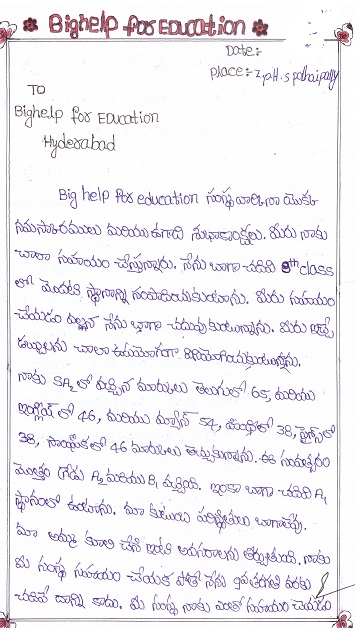 Bighelp for EDUCATION
Date:-
Place:- Z.p.H.s pothaipally
TO
Bighelp for EDUCATION
Hyderabad
Big help for education సంస్థ వారికి నా యొక్క
నమస్కారములు మరియు ఉగాది శుభాకాంక్షలు. మీరు నాకు
చాలా సహాయం చేస్తున్నారు. నేను బాగా చదివి 8th class
లో మొదటి స్థానాన్ని సంపాదించుకుంటాను. మీరు సహాయం
చేయడం వల్లనే నేను బాగా చదువుకుంటున్నాను. మీరు ఇచ్చే
డబ్బులను చాలా ఉపయోగంగా వినియోగించుకుంటున్నాను.
నాకు SA2 లో వచ్చిన మార్కులు తెలుగులో 65, మరియు
ఇంగ్లీష్ లో 46, మరియు మ్యాథ్స్ 54, హిందీలో 38, సైన్స్‌లో
38, సాంఘికలో 46 మార్కులు తెచ్చుకున్నాను. ఈ సంవత్సరం
మొత్తం గ్రేడు A2 మరియు B1 వచ్చింది. ఇంకా బాగా చదివి A1
స్థానంలో ఉంటాను. మా కుటుంబ పరిస్థితులు బాగాలేవు.
మా అమ్మ కూలి చేసి ఇంటి అవసరాలను తీర్చుతుంది. నాకు
మీ సంస్థ సహాయం చేయక పోతే నేను ఇవతరగతి వరకు
చదివే దాన్ని కాదు. మీ సంస్థ నాకు ఎంతో సహాయం చేయడం